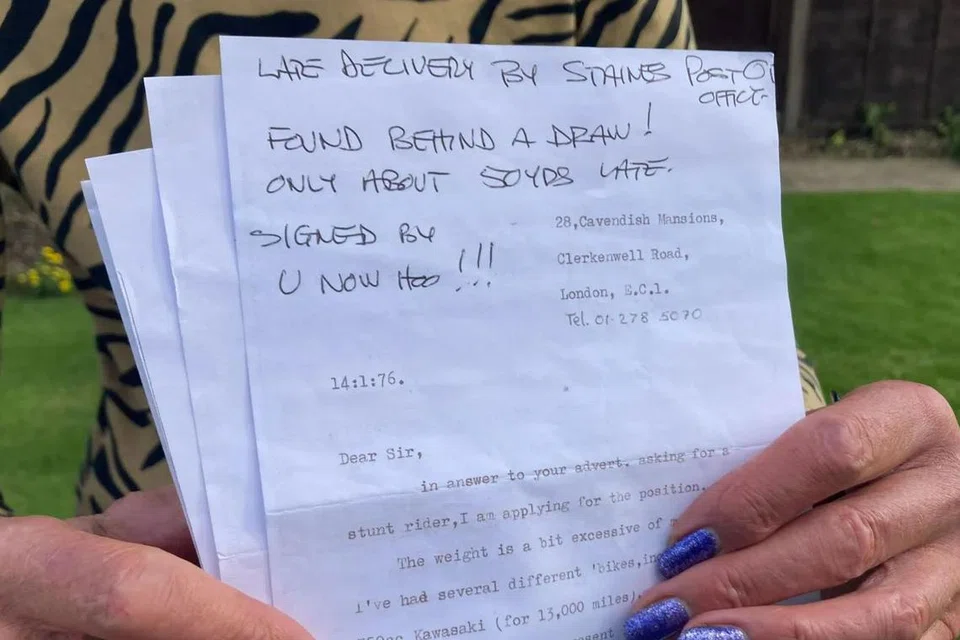 LATE DELIVERY BY STAINES POST
OFFICE.
FOUND BEHIND A DRAW!
ONLY ABOUT 50YDS LATE.
SIGNED BY
U NOW HOO !!!
28,Cavendish Mansions,
Clerkenwell Road,
London, E.C.1.
Tel. 01-278 5070
14:1:76.
Dear Sir,
in answer to your advert. asking for a
stunt rider,I am applying for the position.
The weight is a bit excessive of
I've had several different 'bikes,in
Kawasaki (for 13,000 miles)